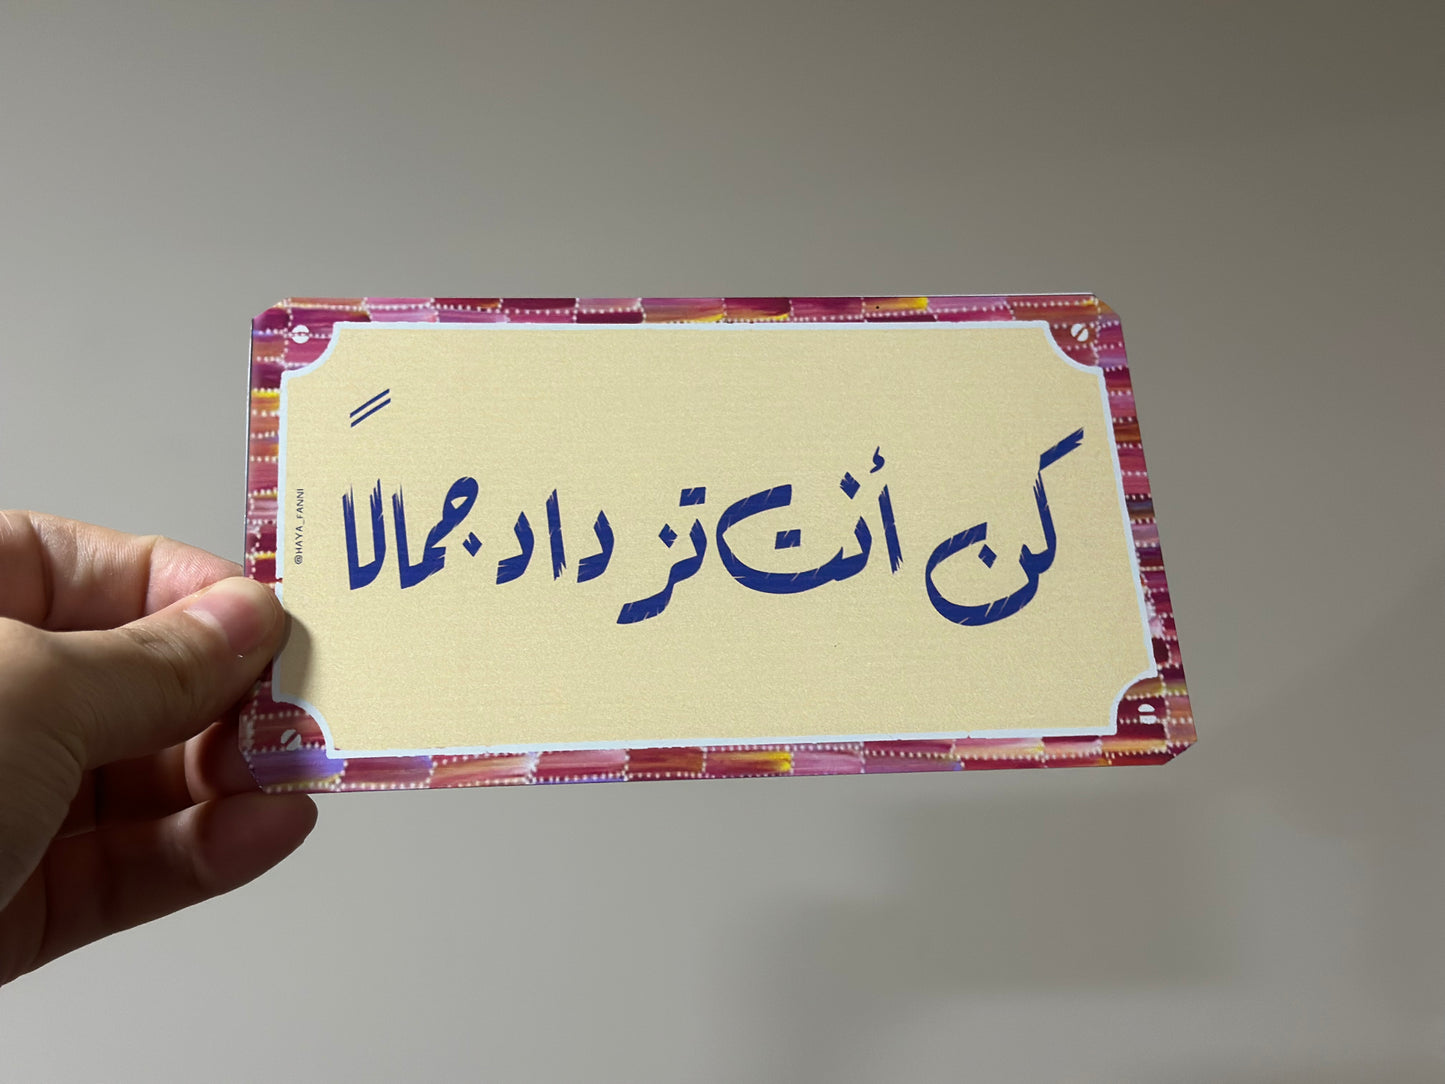 كن أنت تزداد جمالاً
@HAYA_FANNI